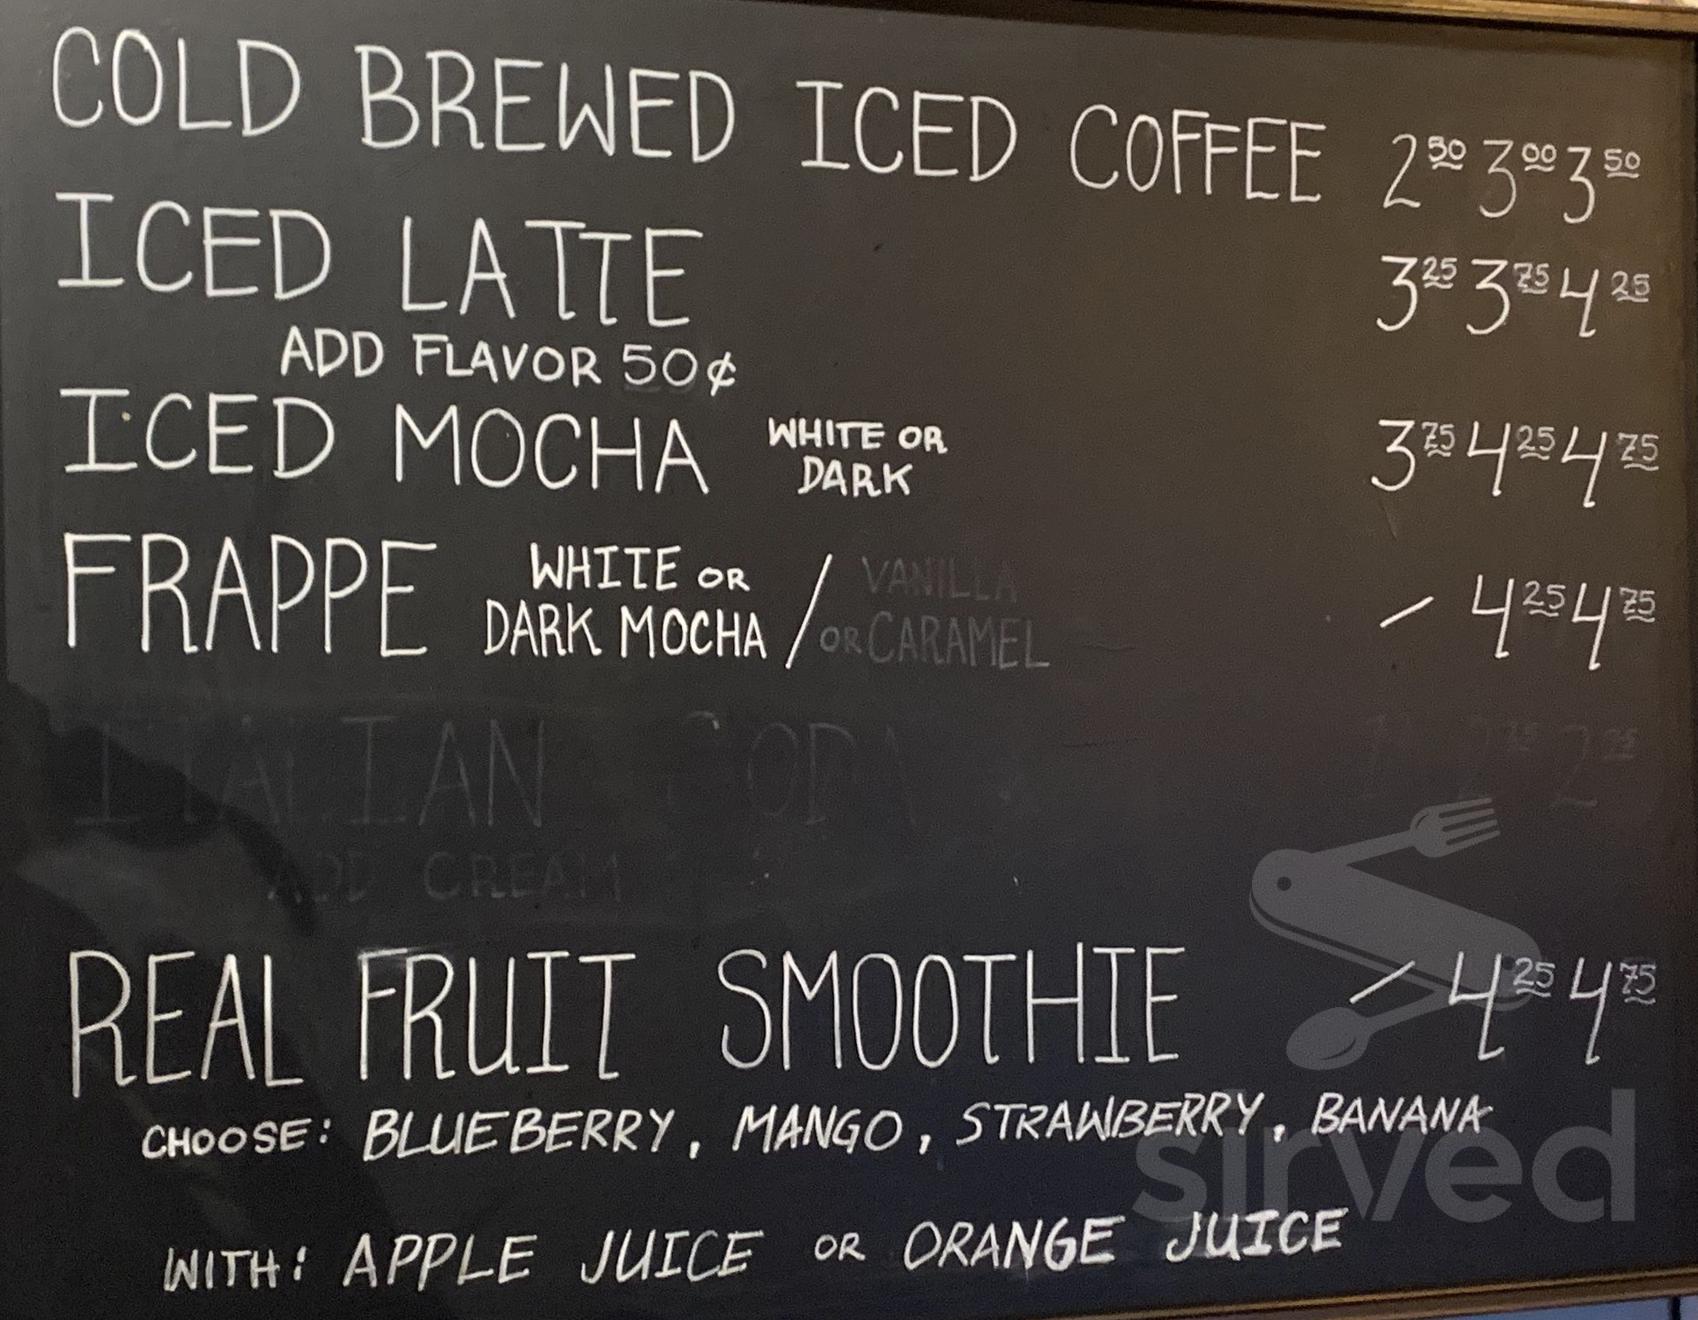 COLD BREWED ICED COFFEE 2 50 3 00 3 50
ICED LATTE 3 25 3 75 4 25
ADD FLAVOR 50¢
ICED MOCHA WHITE OR 3 75 4 25 4 75
DARK
FRAPPE WHITE OR / VANILLA – 4 25 4 75
DARK MOCHA OR CARAMEL
ITALIAN SODA
ADD CREAM
REAL FRUIT SMOOTHIE – 4 25 4 75
CHOOSE: BLUEBERRY, MANGO, STRAWBERRY, BANANA
sirved
WITH: APPLE JUICE OR ORANGE JUICE